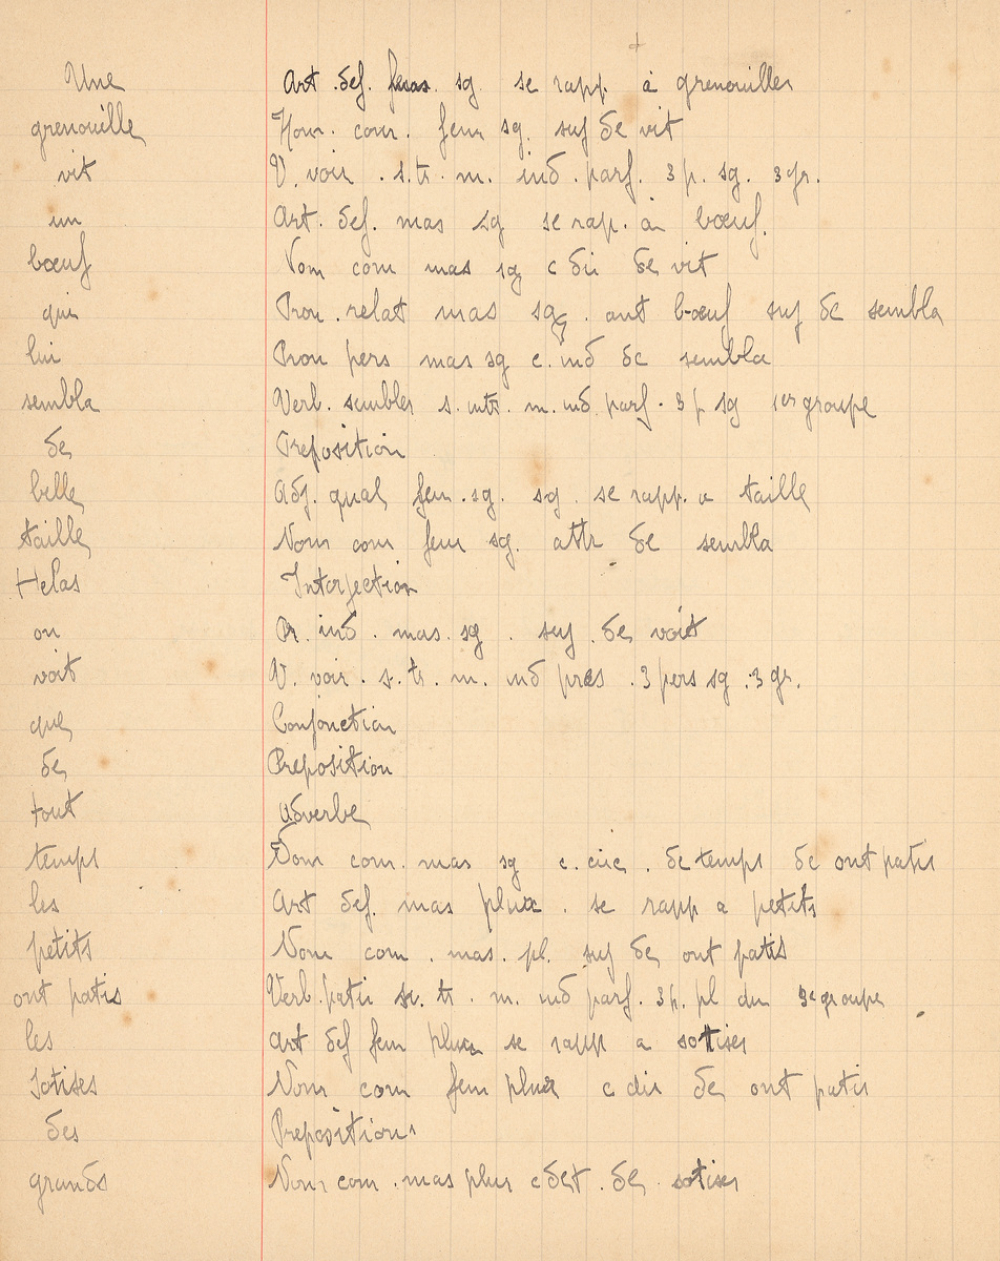 Une Art. def. fem. sg. se rapp. à grenouilles
grenouille Nom. com. fem sg. suj de vit
vit V. voir . s. tr. m. ind. parf. 3 p. sg. 3 gr.
un Art. def. mas sg se rap. à bœuf.
bœuf Nom com mas sg c dir de vit
qui Pron. relat mas sg. ant bœuf suj de sembla
lui Pron pers mas sg c. ind de sembla
sembla Verb. sembler s. intr. m. ind. parf. 3 p sg 1er groupe
de Preposition
belle Adj. qual fem. sg. sg. se rapp. a taille
taille Nom com fem sg. attr de sembla
Helas Interjection
on Pr. ind. mas. sg. suj. de voit
voit V. voir. s. tr. m. ind pres . 3 pers sg. 3 gr.
que Conjonction
de Preposition
tout Adverbe
temps Nom com. mas sg c. circ. de temps de ont patis
les Art def. mas plur. se rapp a petits
petits Nom com. mas. pl. suj de ont patis
ont patis Verb. patir s. tr. m. ind parf. 3 p. pl du 3e groupe
les Art def fem plur se rapp a sottises
Sotises Nom com fem plur c dir de ont patis
des Prepositions
grands Nom com. mas plur c det. de sotises